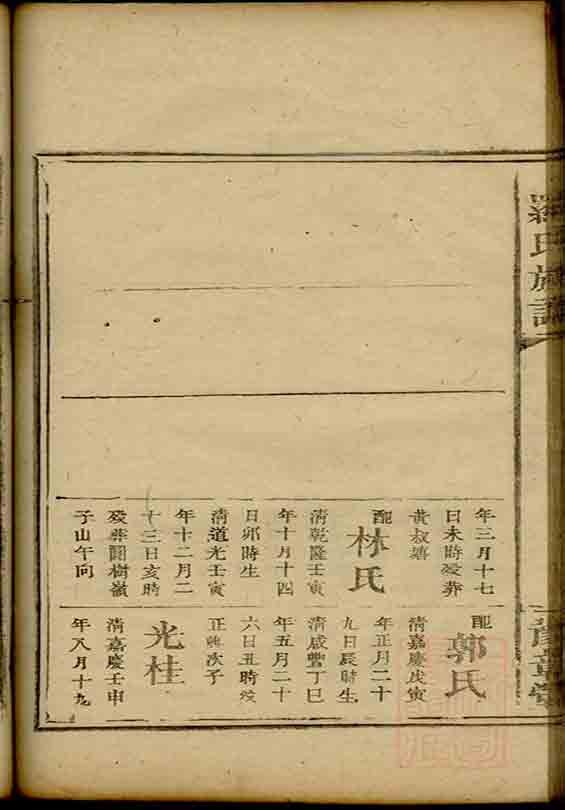 羅氏族譜
豫章堂
年三月十七
日未時歿葬
黃叔塘
配
林氏
清乾隆壬寅
年十月十四
日卯時生
清道光壬寅
年十二月二
十三日亥時
歿葬圓樹嶺
子山午向
配
郭氏
清嘉慶戊寅
年正月二十
九日辰時生
清咸豐丁巳
年五月二十
六日丑時歿
正典次子
光桂
清嘉慶壬申
年八月十九